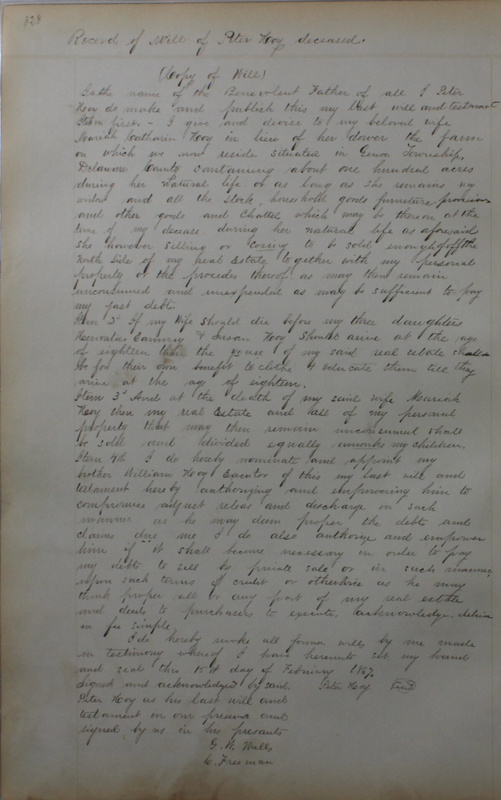 328
Record of Will of Peter Hoy deceased.
(Copy of Will)
In the name of the Benevolent Father of all I Peter
Hoy do make and publish this my last will and testament
Item first - I give and devise to my beloved wife
Mariah Catharin Hoy in lieu of her dower the farm
on which we now reside situated in Genoa Township,
Delaware County containing about one hundred acres
during her natural life or as long as she remains my
widow and all the stock, household goods furniture provisions
and other goods and chattels which may be thereon at the
time of my decease during her natural life as aforesaid
she however selling or causing to be sold enough off off the
North Side of my Real Estate together with my personal
property or the procedes thereof as may then remain
unconsumed and unexpended as may be sufficient to pay
my just debts.
Item 2d If my wife should die before my three daughters
and Susan Hoy should arive at the age
of eighteen then the of my said real estate shall
go for their own benefit to clothe & educate them till they
arive at the age of eighteen.
Item 3d And at the death of my said wife Mariah
Hoy then my real Estate and all of my personal
property that may then remain unconsumed shall
be sold and divided equally amonks my children.
Item 4th I do hereby nominate and appoint my
brother William Hoy Executor of this my last will and
testament hereby authorizing and empowering him to
compromise adjust releas and discharge in such
manner as he may deem proper the debts and
claims due me I do also authorize and empower
him if it shall become necessary in order to pay
my debts to sell by private sale or in such manner
upon such terms of credit or otherwise as he may
think proper all or any part of my real estate
and deeds to purchasers to execute, acknowledge, deliver
in fee simple.
I do hereby revoke all former wills by me made
in testimony whereof I have hereunto set my hand
and seal this 1st day of February 1867.
Signed and acknowledged by said Peter Hoy Seal
Peter Hoy as his last will and
testament in our presence and
signed by us in his presents
G. W. Wells
C. Freeman